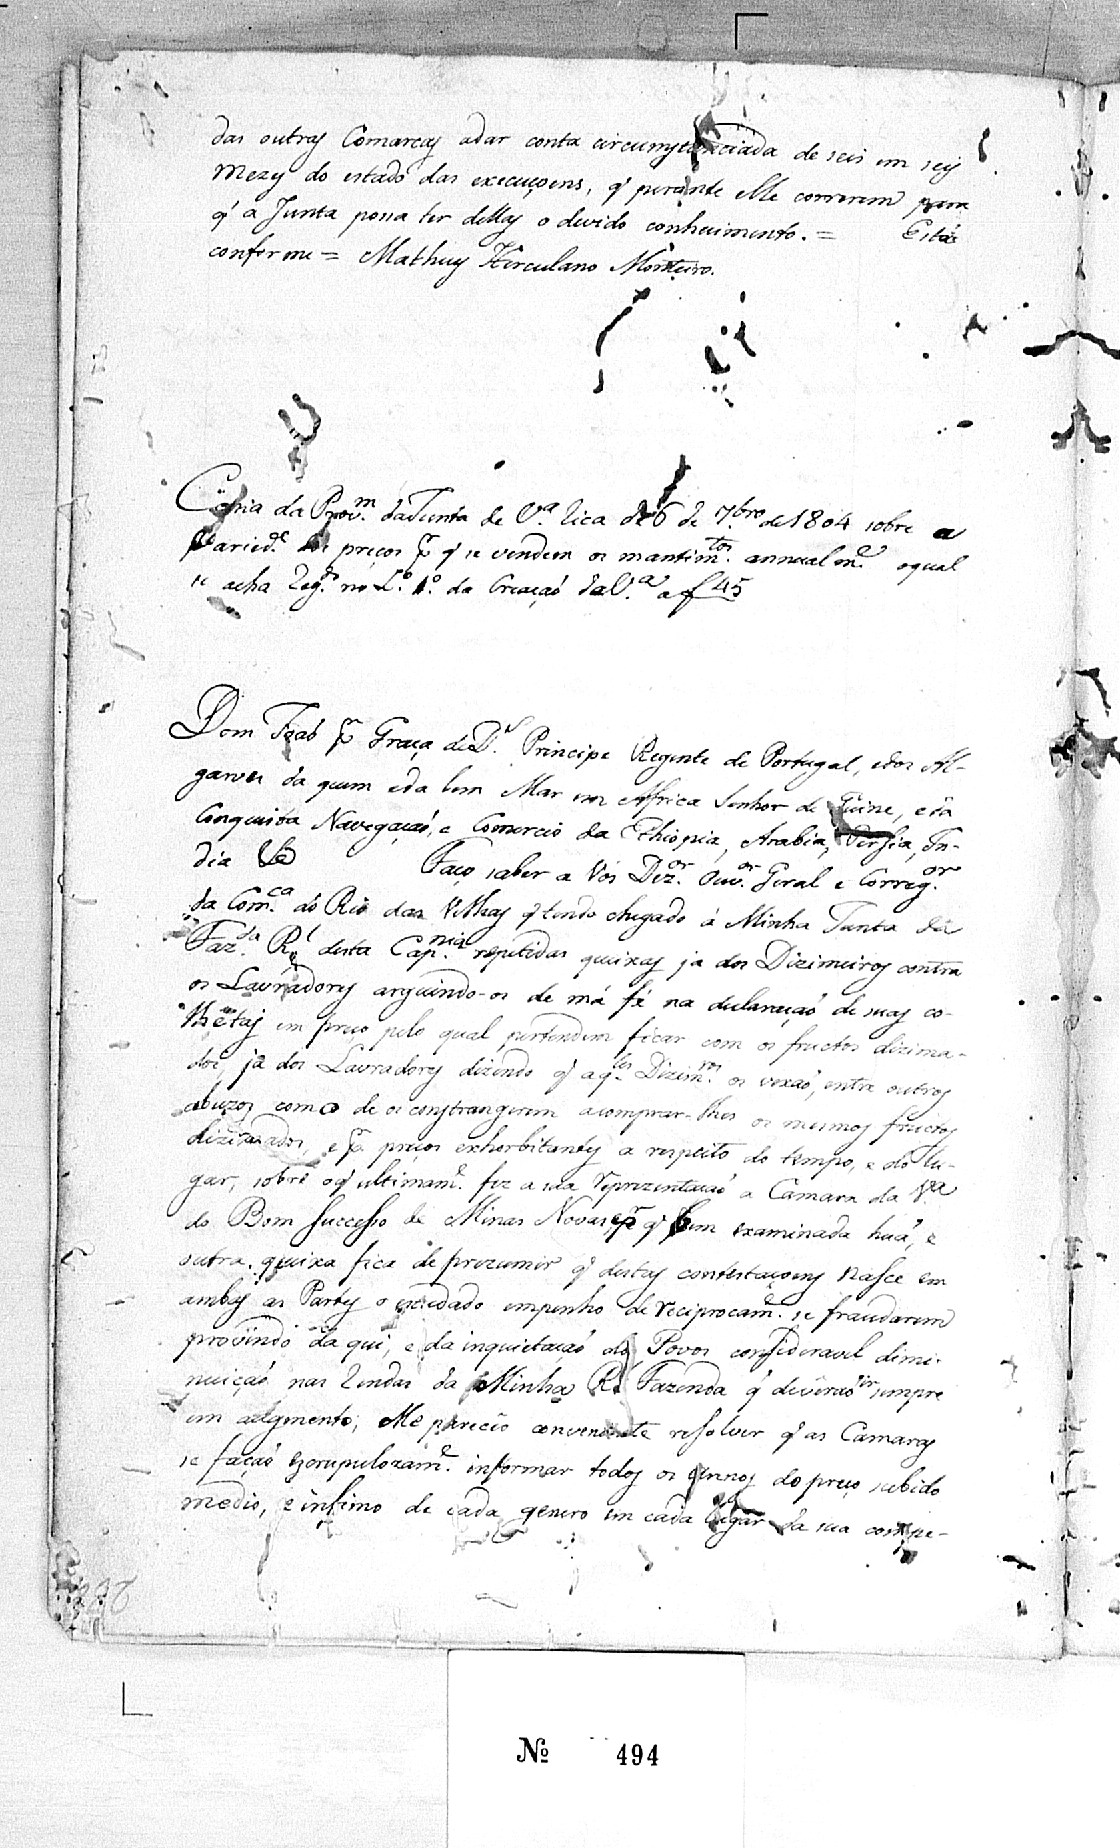 das outras Comarcas adar conta circumstanciada de seis em seis
mezes do estado das execuçoens, q' perante Elle correrem para
q' a Junta possa ter dellas o devido conhecimento. = Está
conforme = Matheus Herculano Monteiro.
Copia da Prov.m da Junta de V.a Rica de 6 de 7.bro de 1804 sobre a
varied.e dos preços pr q' se vendem os mantim.tos annualm.e oqual
se acha Reg.do no L.o 1.o da Creaçaõ da V.a a f 45
Dom Joaõ pr Graça de D.s Principe Regente de Portugal, edos Al-
garves da quem eda lem Mar em Affrica Senhor de Guine, eda
Conquista Navegaçaõ, e Comercio da Ethiopia, Arabia, Persia, In-
dia &a Faço saber a Vós Dez.or Ouv.or Geral e Correg.or
da Com.ca do Rio das Velhas q' tendo chegado á Minha Junta da
Faz.da R.l desta Cap.nia repetidas queixas ja dos Dizimeiros contra
os Lavradores arguindo-os de má fé na declaraçaõ de suas co-
lhetas em preço pelo qual pertendem ficar com os fructos dizima-
dos, já dos Lavradores dizendo q' aq.les Dizim.ros os vexaõ, entre outros
abuzos como de os constrangerem acomprar-lhes os mesmos fructos
dizimados, e pr preços exhorbitantes a respeito do tempo, e do lu-
gar, sobre oq' ultimam.e fez a sua reprezentaçaõ a Camara da V.a
do Bom Successo de Minas Novas, e pr q' bem examinada huã, e
outra queixa fica de prezumir q' destas contestaçoens nasce em
ambas as Partes o cuidado empenho de reciprocam.e se fraudarem
provindo da qui, e da inquietaçaõ dos Povos consideravel dimi-
nuiçaõ nas Rendas da Minha R.l Fazenda q' deveraõ ir sempre
em augmento; Me pareceo conveniente resolver q' as Camaras
se façaõ escrupulozam.e informar todos os annos do preço subido
medio, e infimo de cada genero em cada lugar da sua compe-
Nº 494